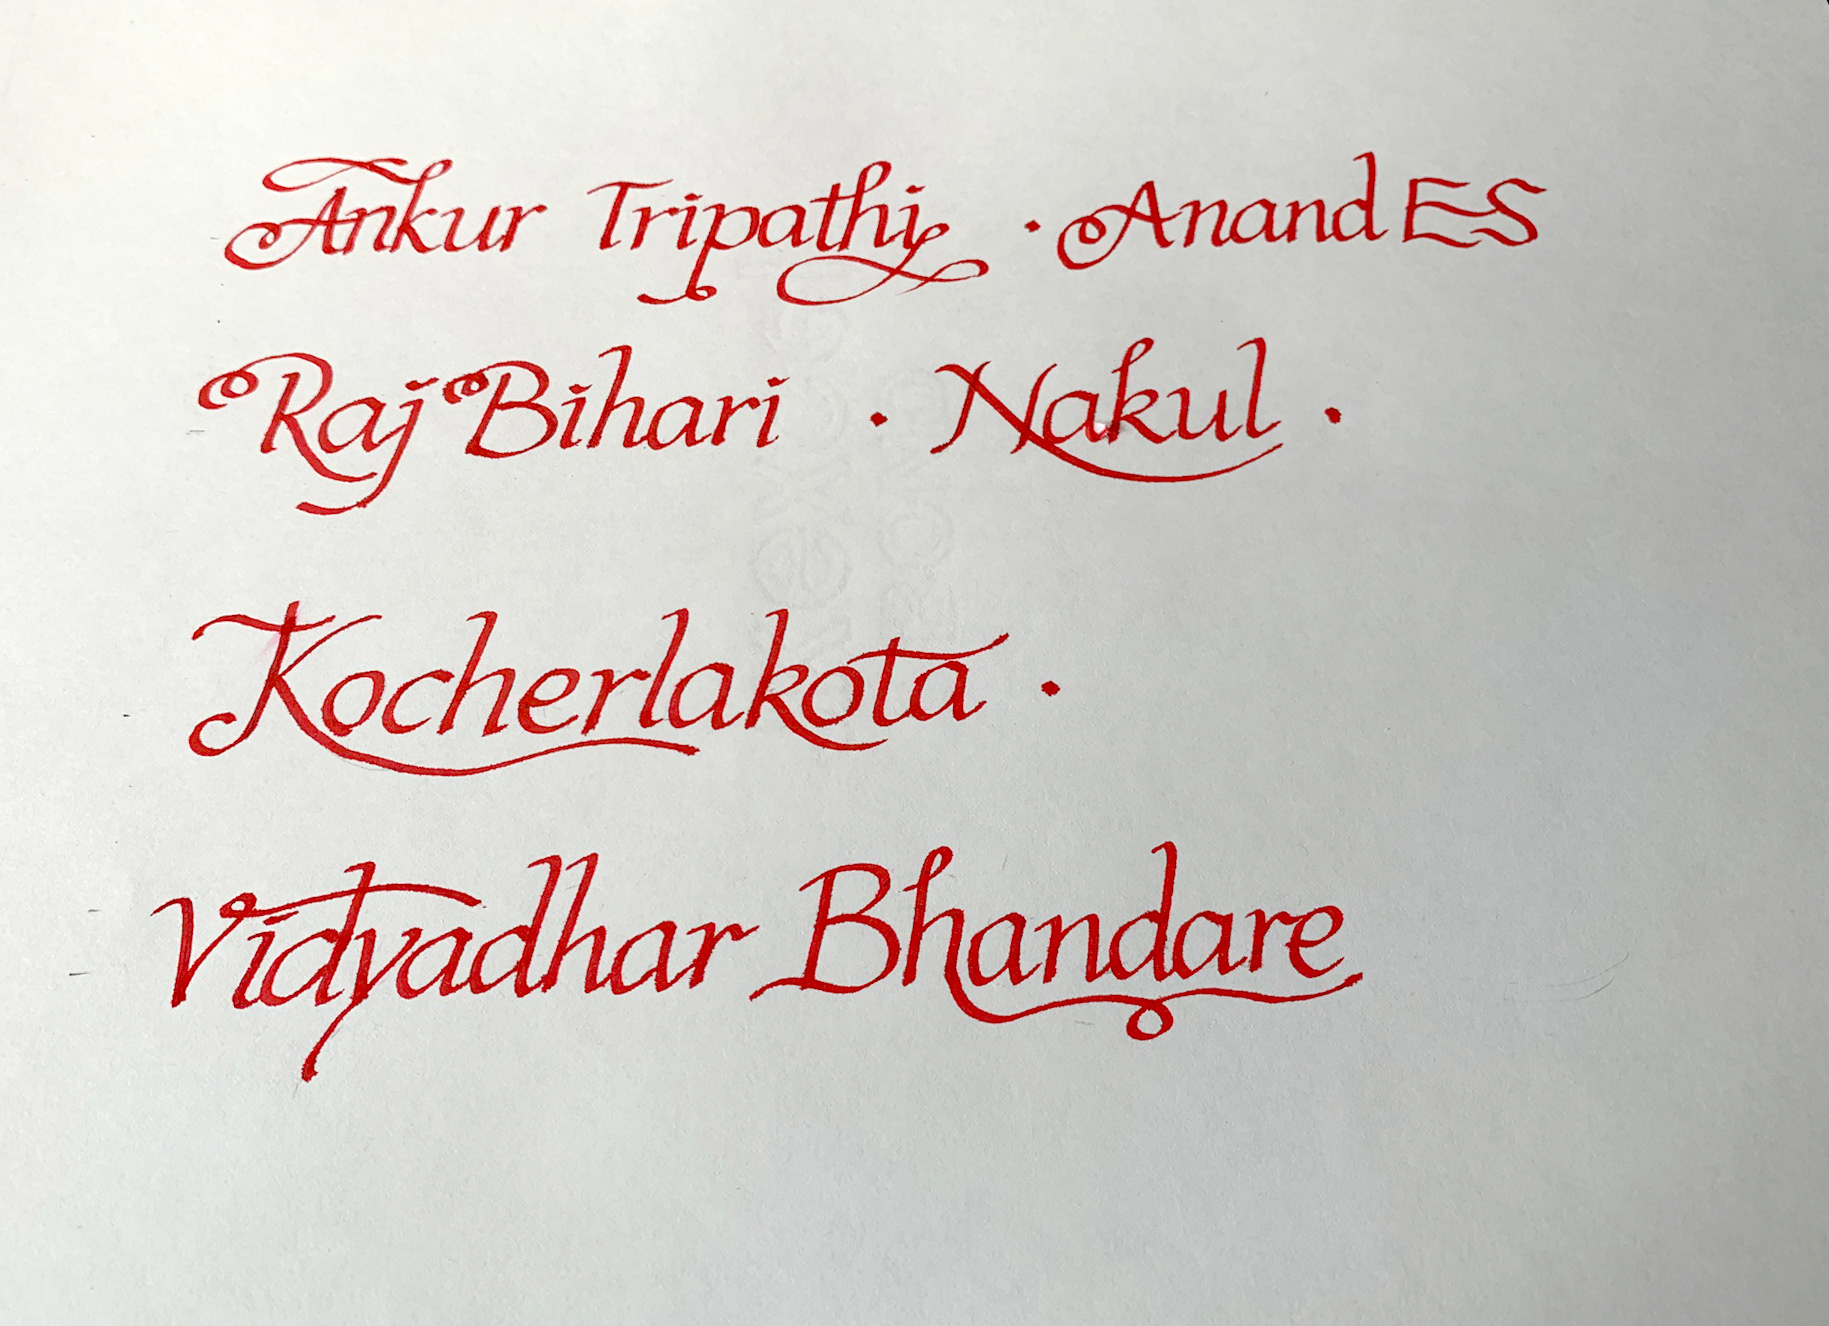 Ankur Tripathi · Anand ES
Raj Bihari · Nakul ·
Kocherlakota ·
Vidyadhar Bhandare